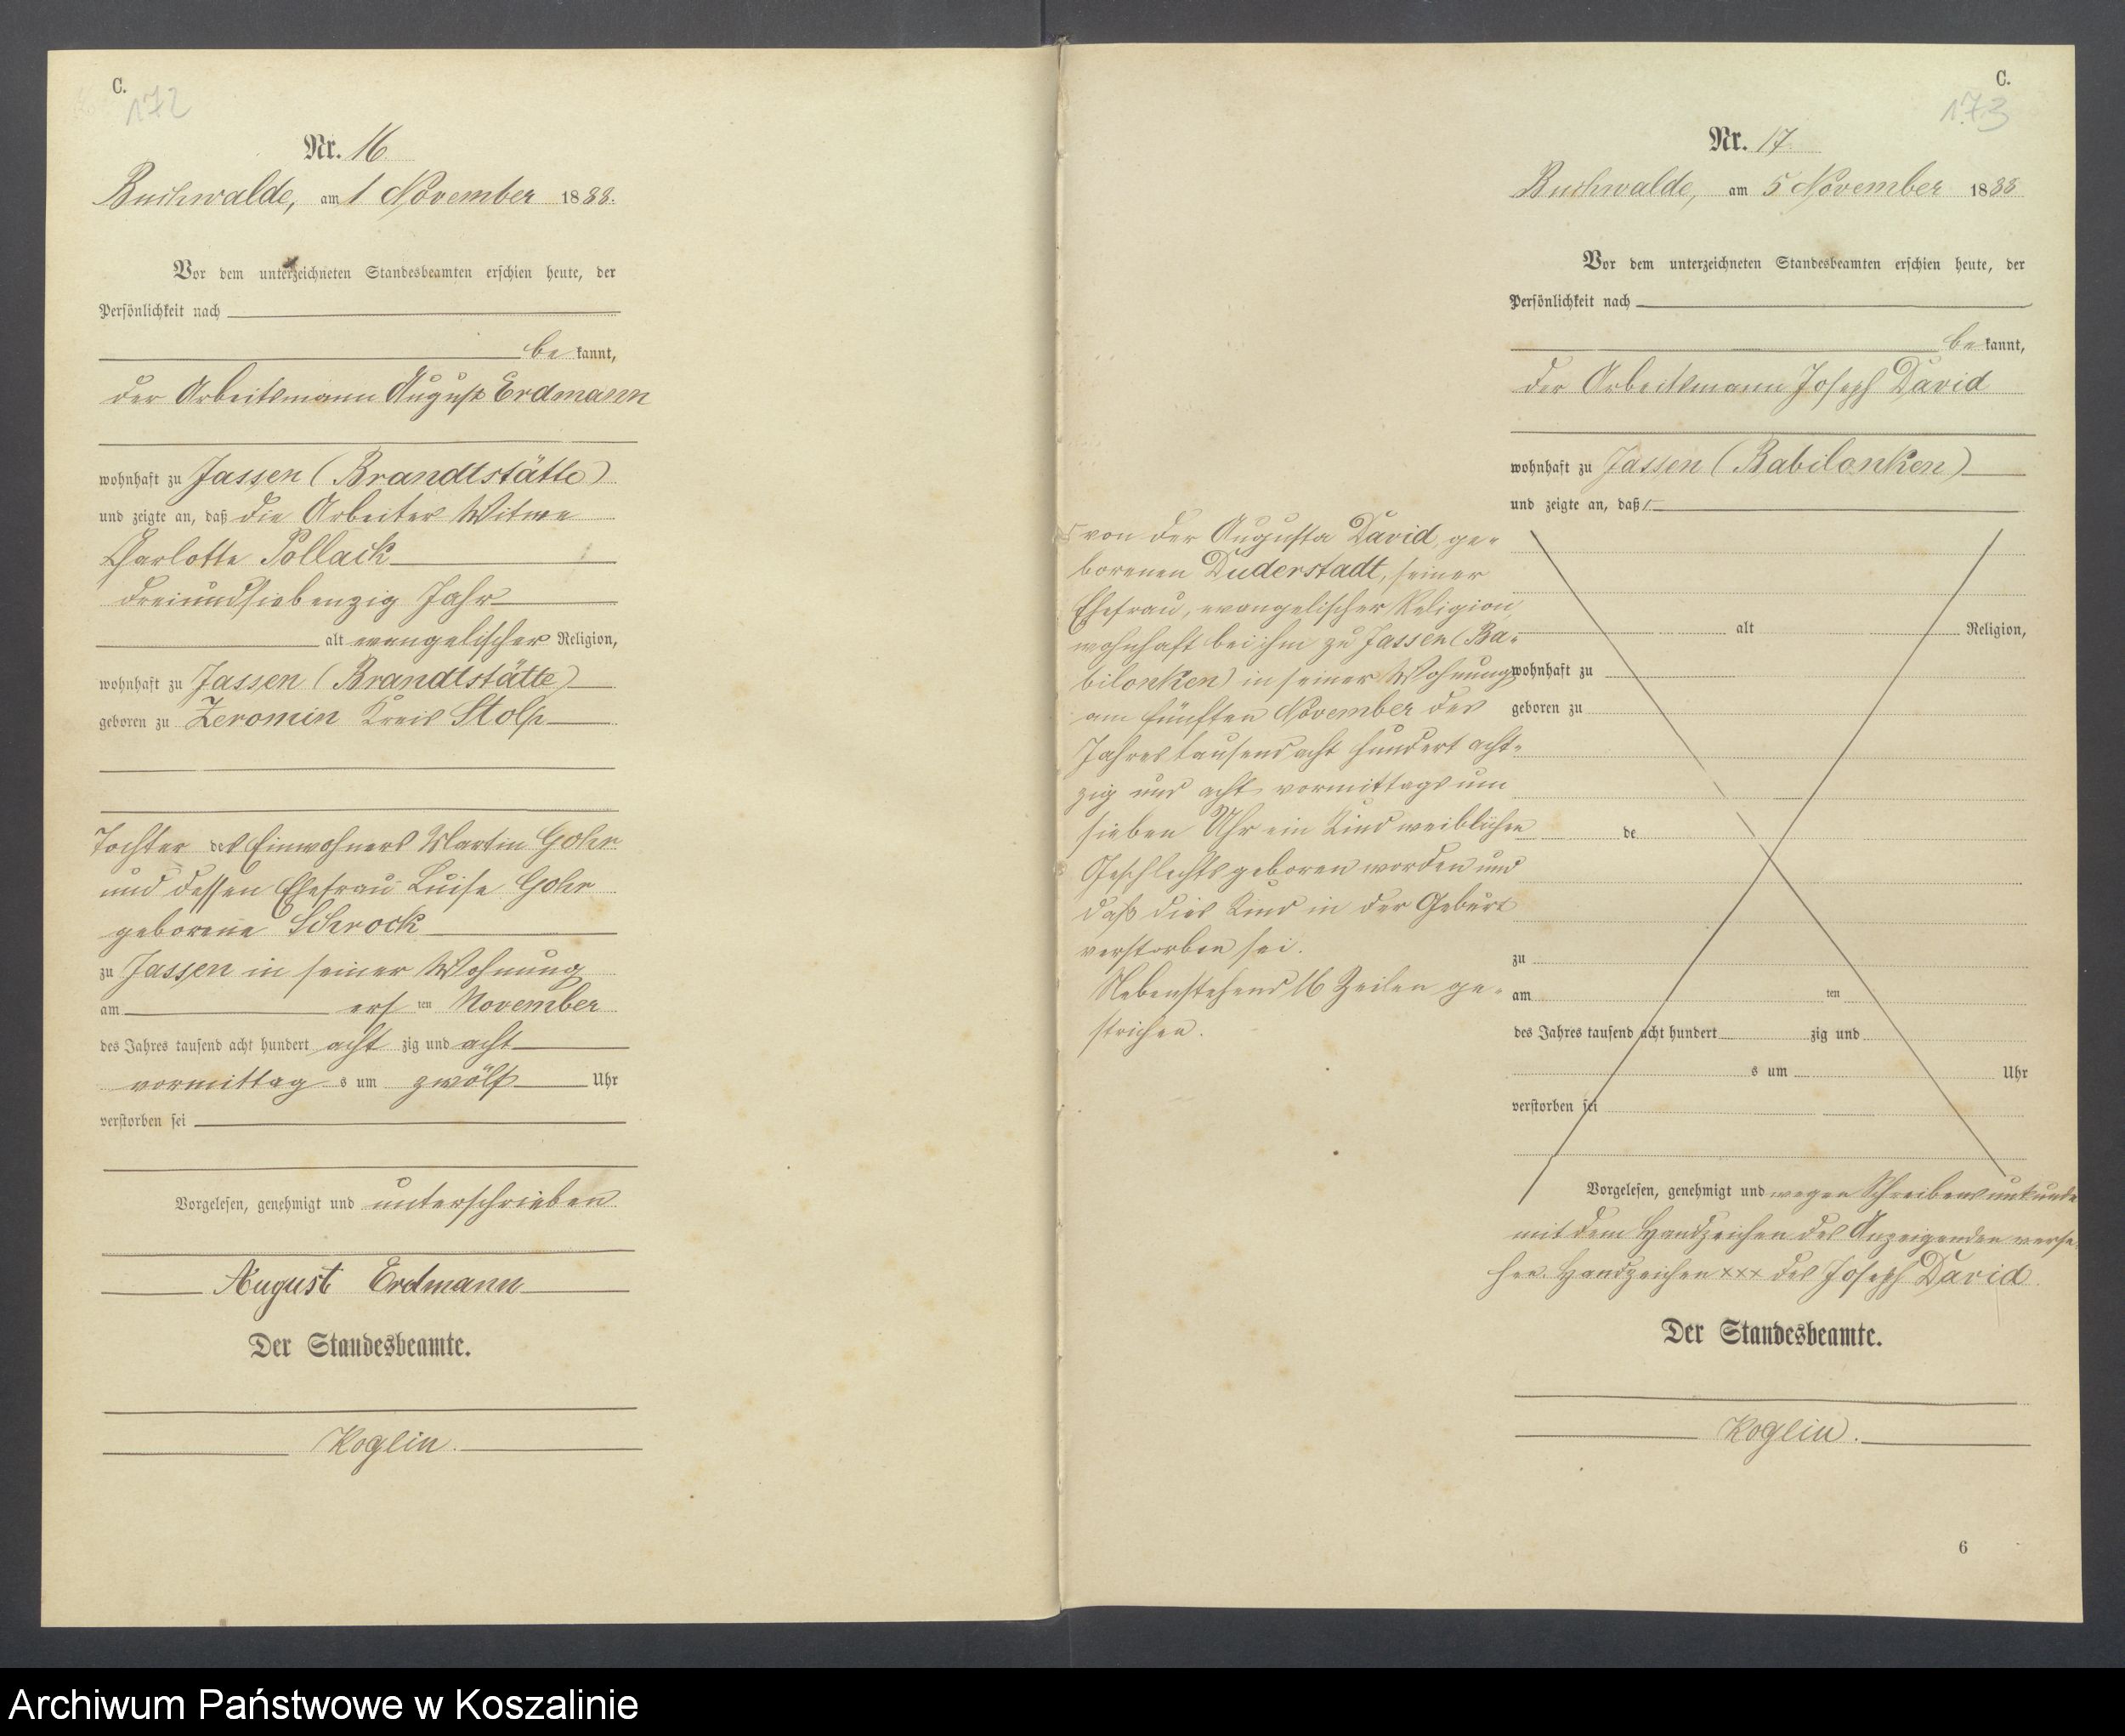 C.
172
Nr. 16
Buchwalde, am 1 November 1888.
Vor dem unterzeichneten Standesbeamten erschien heute, der
Persönlichkeit nach
be kannt,
der Arbeitsmann August Erdmann
wohnhaft zu Jassen (Brandtstätte)
und zeigte an, daß die Arbeiter Witwe
Charlotte Pollack
dreiundsiebenzig Jahr
alt evangelischer Religion,
wohnhaft zu Jassen (Brandtstätte)
geboren zu Zeromin Kreis Stolp
Tochter des Einwohners Martin Gohr
und dessen Ehefrau Luise Gohr
geborene Schrock
zu Jassen in seiner Wohnung
am ers ten November
des Jahres tausend acht hundert acht zig und acht
vormittag s um zwölf Uhr
verstorben sei
Vorgelesen, genehmigt und unterschrieben
August Erdmann
Der Standesbeamte.
Koglin.
C.
173
Nr. 17
Buchwalde, am 5 November 1888
Vor dem unterzeichneten Standesbeamten erschien heute, der
Persönlichkeit nach
be kannt,
der Arbeitsmann Joseph David
wohnhaft zu Jassen (Babilonken)
und zeigte an, daß
von der Augusta David, ge-
borenen Duderstadt, seiner
Ehefrau, evangelischer Religion,
wohnhaft bei ihm zu Jassen (Ba-
bilonken) in seiner Wohnung
am fünften November des
Jahres tausend acht hundert acht-
zig und acht vormittags um
sieben Uhr ein Kind weiblichen
Geschlechts geboren worden und
daß dies Kind in der Geburt
verstorben sei.
Nebenstehend 16 Zeilen ge-
strichen.
alt Religion,
wohnhaft zu
geboren zu
de
zu
am ten
des Jahres tausend acht hundert zig und
s um Uhr
verstorben sei
Vorgelesen, genehmigt und wegen Schreibensunkunde
mit dem Handzeichen des Anzeigenden verse-
hen. Handzeichen xxx des Joseph David
Der Standesbeamte.
Koglin.
6
Archiwum Państwowe w Koszalinie